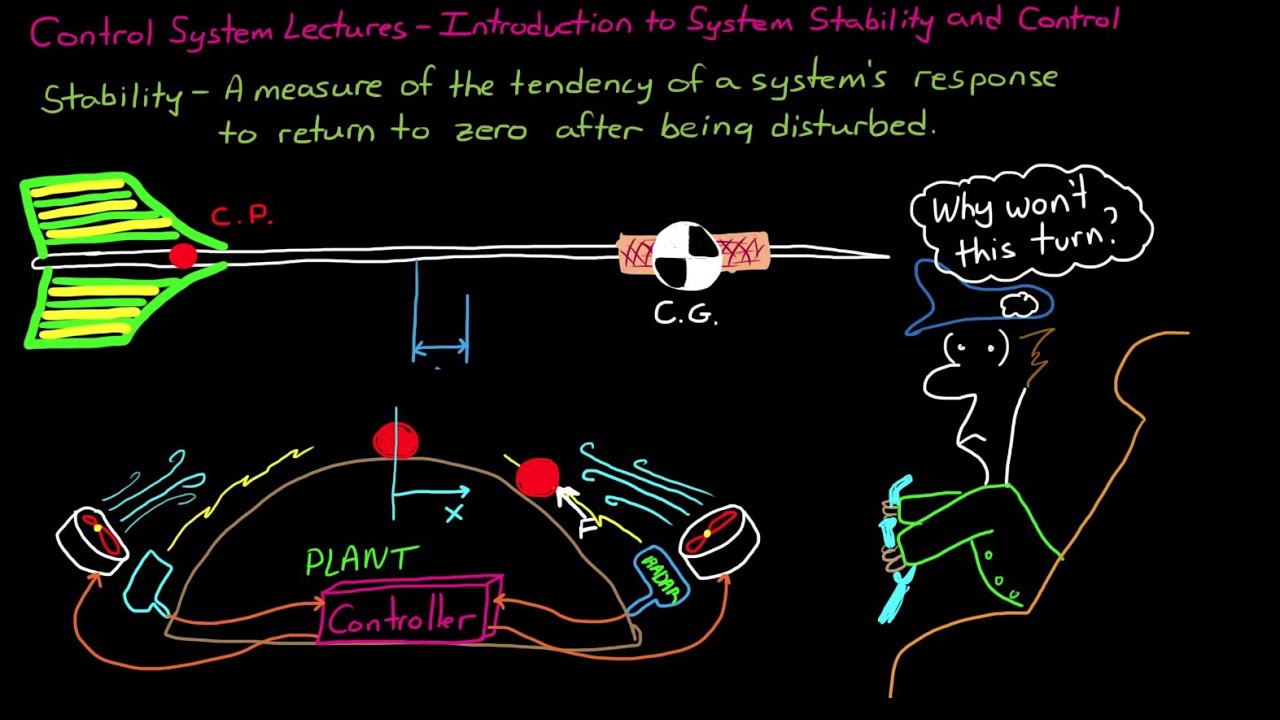 Control System Lectures - Introduction to System Stability and Control
Stability - A measure of the tendency of a system's response
to return to zero after being disturbed.
C.P.
C.G.
Why won't
this turn?
x
F
PLANT
RADAR
Controller